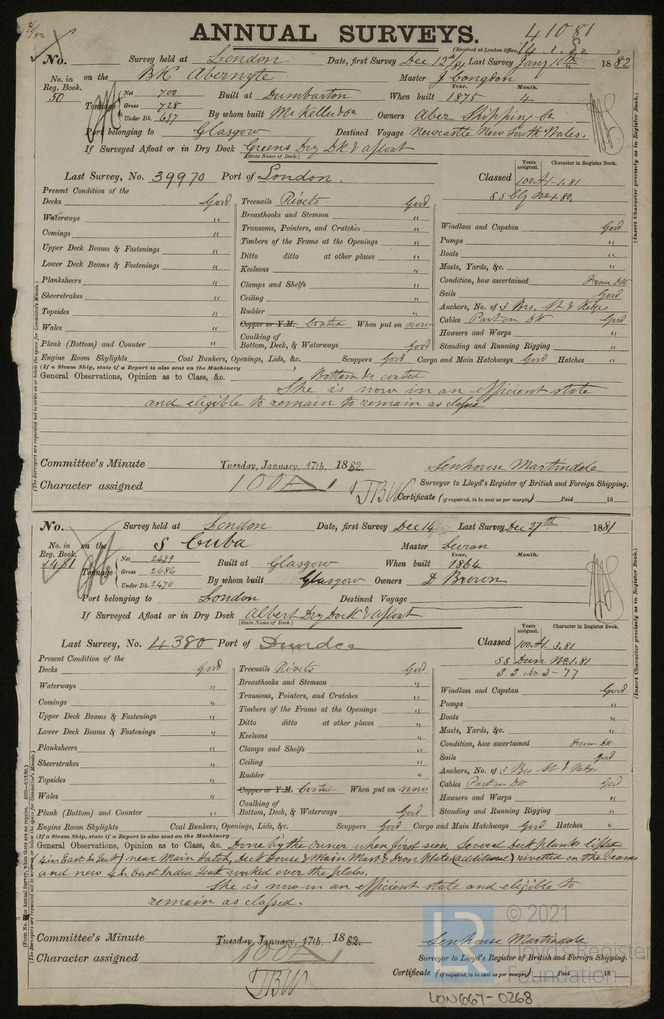 ANNUAL SURVEYS.
41081
(Received at London Office,
No. Survey held at London Date, first Survey Dec 12th/81 Last Survey Jany 10th 1882
No. in Reg. Book. 50 on the Bk Abernyte Master J Congdon
Tonnage Net 700 Gross 728 Under Dk. 657 Built at Dumbarton When built Year. 1875 Month. 4
By whom built McKellar & Co Owners Aber Shipping Co
Port belonging to Glasgow Destined Voyage Newcastle New South Wales.
If Surveyed Afloat or in Dry Dock Greens Dry Dk & afloat
(State Name of Dock.)
Last Survey, No. 39970 Port of London. Classed
Years assigned. Character in Register Book.
100 A1 - 1.81
Present Condition of the
Decks Good
Waterways "
Comings "
Upper Deck Beams & Fastenings "
Lower Deck Beams & Fastenings "
Planksheers "
Sheerstrakes "
Topsides "
Wales "
Plank (Bottom) and Counter "
Treenails Rivets Good
Breasthooks and Stemson "
Transoms, Pointers, and Crutches "
Timbers of the Frame at the Openings "
Ditto ditto at other places "
Keelsons "
Clamps and Shelfs "
Ceiling "
Rudder "
Copper or Y.M. Coated When put on now
Caulking of
Bottom, Deck, & Waterways Good
Windlass and Capstan Good
Pumps "
Boats "
Masts, Yards, &c. "
Condition, how ascertained From Dk
Sails Good
Anchors, No. of 3 Brs. St & Kedges
Cables Part on Dk Good
Hawsers and Warps "
Standing and Running Rigging "
Engine Room Skylights Coal Bunkers, Openings, Lids, &c. Scuppers Good Cargo and Main Hatchways Good Hatches "
(If a Steam Ship, state if a Report is also sent on the Machinery
General Observations, Opinion as to Class, &c. Bottom &c coated
She is now in an efficient state
and eligible to remain to remain as classed
Committee's Minute Tuesday, January, 17th, 1882.
Senhouse Martindale
Surveyor to Lloyd's Register of British and Foreign Shipping.
Character assigned 100A1
JBW
Certificate (if required, to be sent as per margin) Paid 18
No. Survey held at London Date, first Survey Dec 14 Last Survey Dec 27th 1881
No. in Reg. Book. 1481 on the S Cuba Master Leeran
Tonnage Net 2499 Gross 2686 Under Dk. 2470 Built at Glasgow When built Year. 1864 Month.
By whom built Glasgow Owners D Brown
Port belonging to London Destined Voyage
If Surveyed Afloat or in Dry Dock Albert Dry Dock & afloat
(State Name of Dock.)
Last Survey, No. 4380 Port of Dundee Classed
Years assigned. Character in Register Book.
100 A1. 3.81
SS Dun No 2.81
S.S. No 3-77
Present Condition of the
Decks Good
Waterways "
Comings "
Upper Deck Beams & Fastenings "
Lower Deck Beams & Fastenings "
Planksheers "
Sheerstrakes "
Topsides "
Wales "
Plank (Bottom) and Counter "
Treenails Rivets Good
Breasthooks and Stemson "
Transoms, Pointers, and Crutches "
Timbers of the Frame at the Openings "
Ditto ditto at other places "
Keelsons "
Clamps and Shelfs "
Ceiling "
Rudder "
Copper or Y.M. Coated When put on now
Caulking of
Bottom, Deck, & Waterways Good
Windlass and Capstan Good
Pumps "
Boats "
Masts, Yards, &c. "
Condition, how ascertained From Dk
Sails Good
Anchors, No. of 3 Brs St & Kedges
Cables Part on Dk Good
Hawsers and Warps "
Standing and Running Rigging "
Engine Room Skylights Coal Bunkers, Openings, Lids, &c. Scuppers Good Cargo and Main Hatchways Good Hatches "
(If a Steam Ship, state if a Report is also sent on the Machinery
General Observations, Opinion as to Class, &c. Done by the owner when first seen, Several deck planks lifted
(4 in East In Teak) near Main hatch, deck house & Main Mast & Iron plate (additional) rivetted on the beams
and new 4 in East India Teak worked over the plates.
She is now in an efficient state and eligible to
remain as classed.
Committee's Minute Tuesday, January, 17th, 1882.
Senhouse Martindale
Surveyor to Lloyd's Register of British and Foreign Shipping.
Character assigned 100A1
JBW
Certificate (if required, to be sent as per margin) Paid 18
LR © 2021
Lloyd's Register
Foundation
LON667-0268